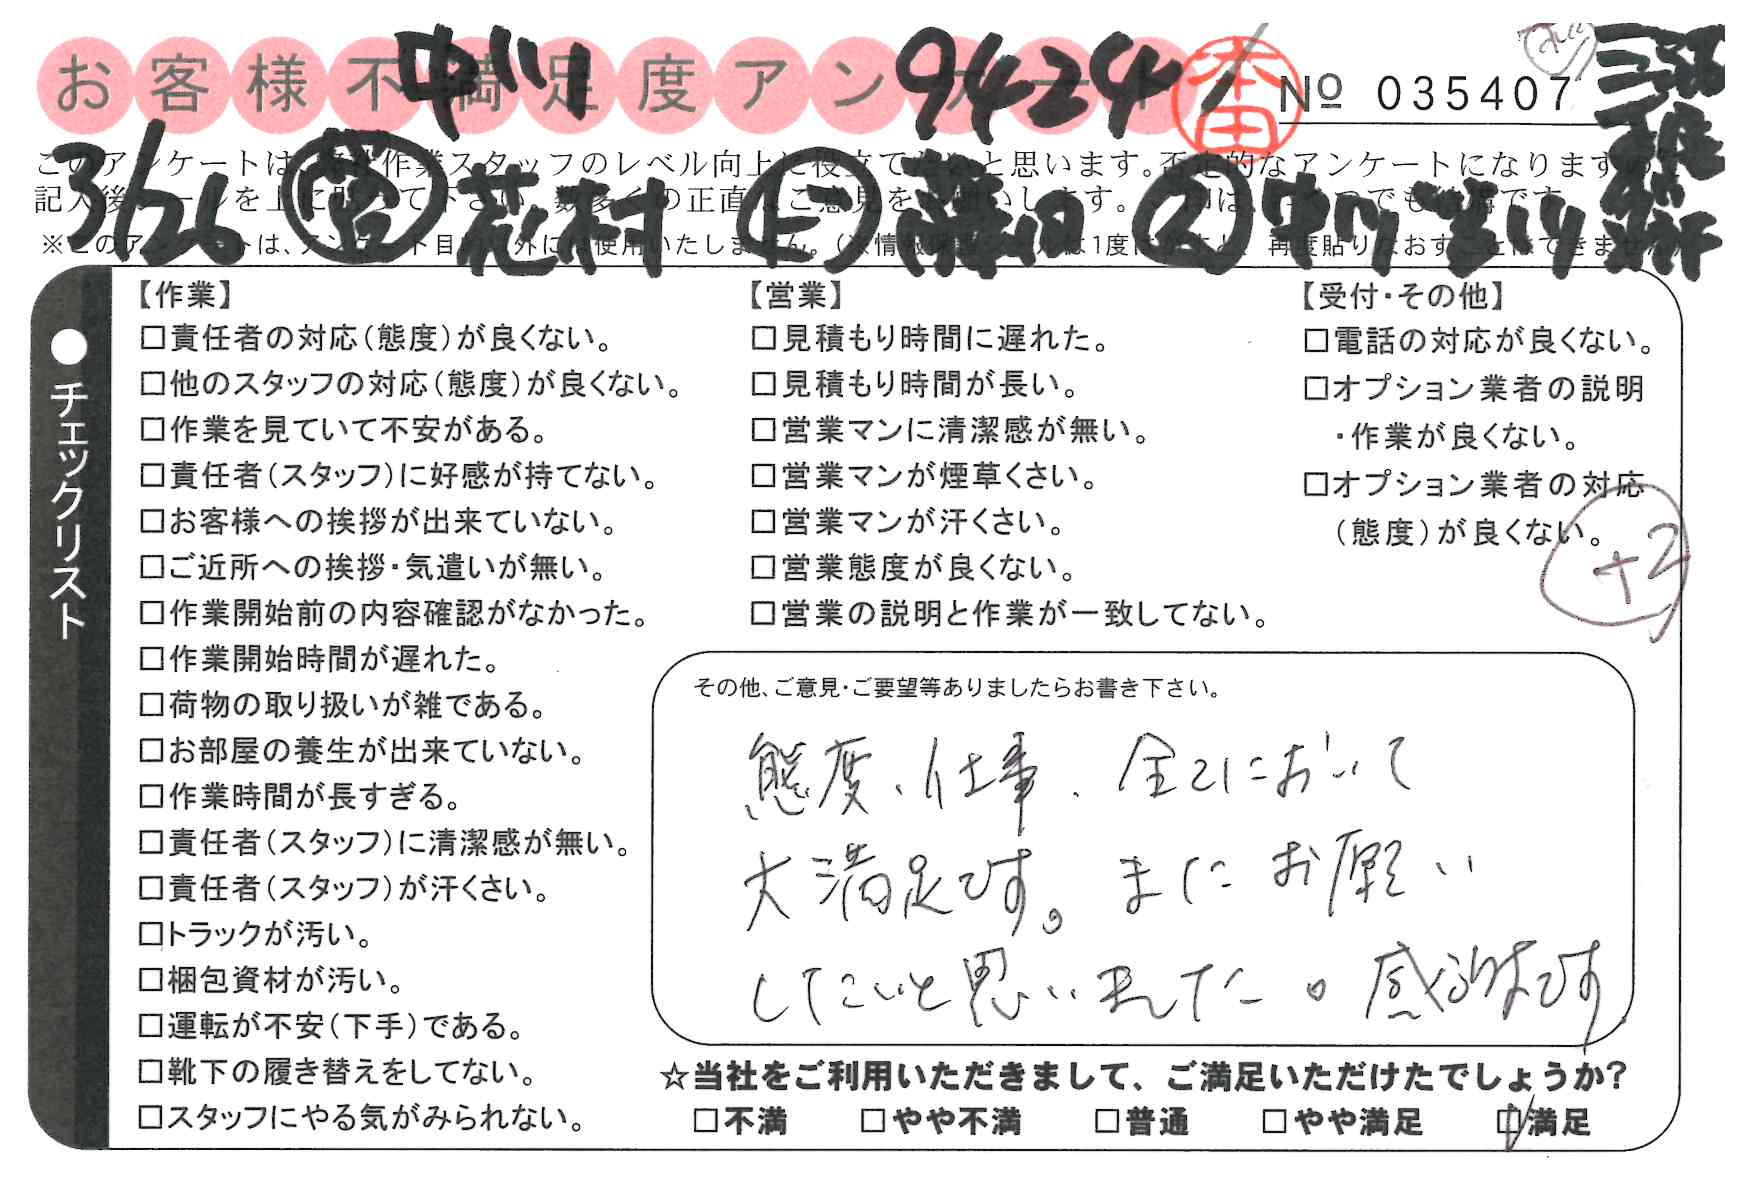 お客様不満足度アンケート
中川
9424
本田
№ 035407
3/26 花村 上 藤田 中川 皆川
このアンケートは、作業スタッフのレベル向上に役立てたいと思います。否定的なアンケートになりますので
記入後シールを上に貼って下さい。数多くの正直なご意見をお願いします。
※このアンケートは、アンケート目的以外には使用いたしません。
チェックリスト
【作業】
□責任者の対応(態度)が良くない。
□他のスタッフの対応(態度)が良くない。
□作業を見ていて不安がある。
□責任者(スタッフ)に好感が持てない。
□お客様への挨拶が出来ていない。
□ご近所への挨拶・気遣いが無い。
□作業開始前の内容確認がなかった。
□作業開始時間が遅れた。
□荷物の取り扱いが雑である。
□お部屋の養生が出来ていない。
□作業時間が長すぎる。
□責任者(スタッフ)に清潔感が無い。
□責任者(スタッフ)が汗くさい。
□トラックが汚い。
□梱包資材が汚い。
□運転が不安(下手)である。
□靴下の履き替えをしてない。
□スタッフにやる気がみられない。
【営業】
□見積もり時間に遅れた。
□見積もり時間が長い。
□営業マンに清潔感が無い。
□営業マンが煙草くさい。
□営業マンが汗くさい。
□営業態度が良くない。
□営業の説明と作業が一致してない。
【受付・その他】
□電話の対応が良くない。
□オプション業者の説明
・作業が良くない。
□オプション業者の対応
(態度)が良くない。
+2
その他、ご意見・ご要望等ありましたらお書き下さい。
態度、仕事、全てにおいて
大満足です。またお願い
したいと思いました。感謝です
☆当社をご利用いただきまして、ご満足いただけたでしょうか?
□不満 □やや不満 □普通 □やや満足 □満足